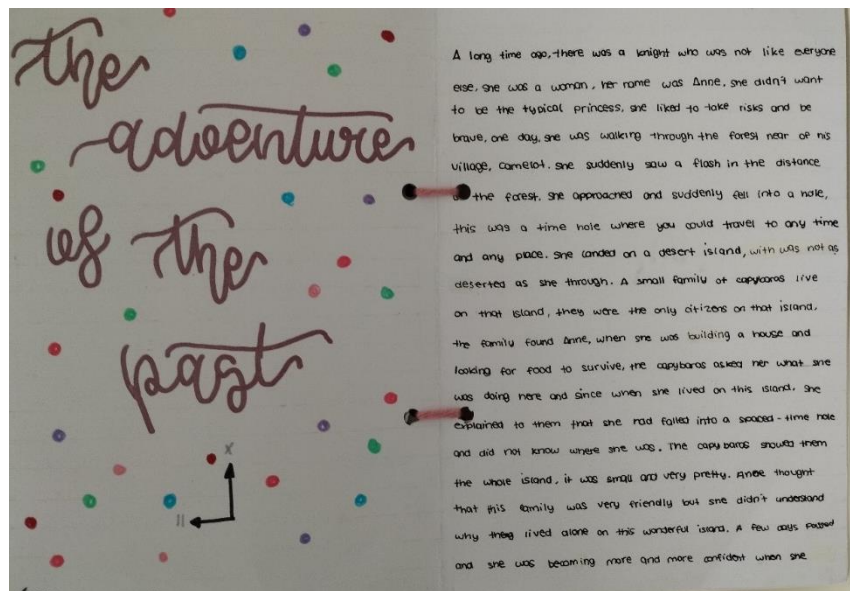 the
adventure
of the
past
X
=
A long time ago, there was a knight who was not like everyone
else, she was a woman, her name was Anne, she didn't want
to be the typical princess, she liked to take risks and be
brave, one day, she was walking through the forest near of his
village, camelot. she suddenly saw a flash in the distance
the forest. she approached and suddenly fell into a hole,
this was a time hole where you could travel to any time
and any place. she landed on a desert island, with was not as
deserted as she through. A small family of capybaras live
on that island, they were the only citizens on that island.
the family found Anne, when she was building a house and
looking for food to survive, the capybaras asked her what she
was doing here and since when she lived on this island. she
explained to them that she had falled into a spaced-time hole
and did not know where she was. The capybaras showed them
the whole island, it was small and very pretty. Anne thought
that this family was very friendly but she didn't understand
why they lived alone on this wonderful island. A few days passed
and she was becoming more and more confident when she